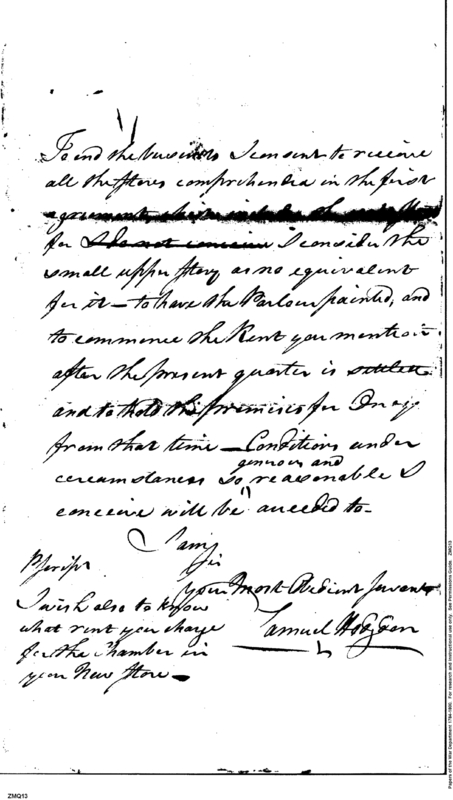 To end the business I consent to receive
all the Stores comprehended in the first
agreement, which includes the
for I do not conceive I consider the
small upper Story as no equivalent
for it — to have the Parlour painted, and
to commence the Rent you mention
after the present quarter is settled
and to hold the premises for
from that time — Conditions under
generous and
circumstances so reasonable I
conceive will be acceeded to —
I am
Sir
your most Obedient Servant
Samuel Hodgdon
Pscript
I wish also to know
what rent you charge
for the Chamber in
your New Store —
ZMQ13
Papers of the War Department 1784-1800. For research and instructional use only. See Permissions Guide. ZMQ13